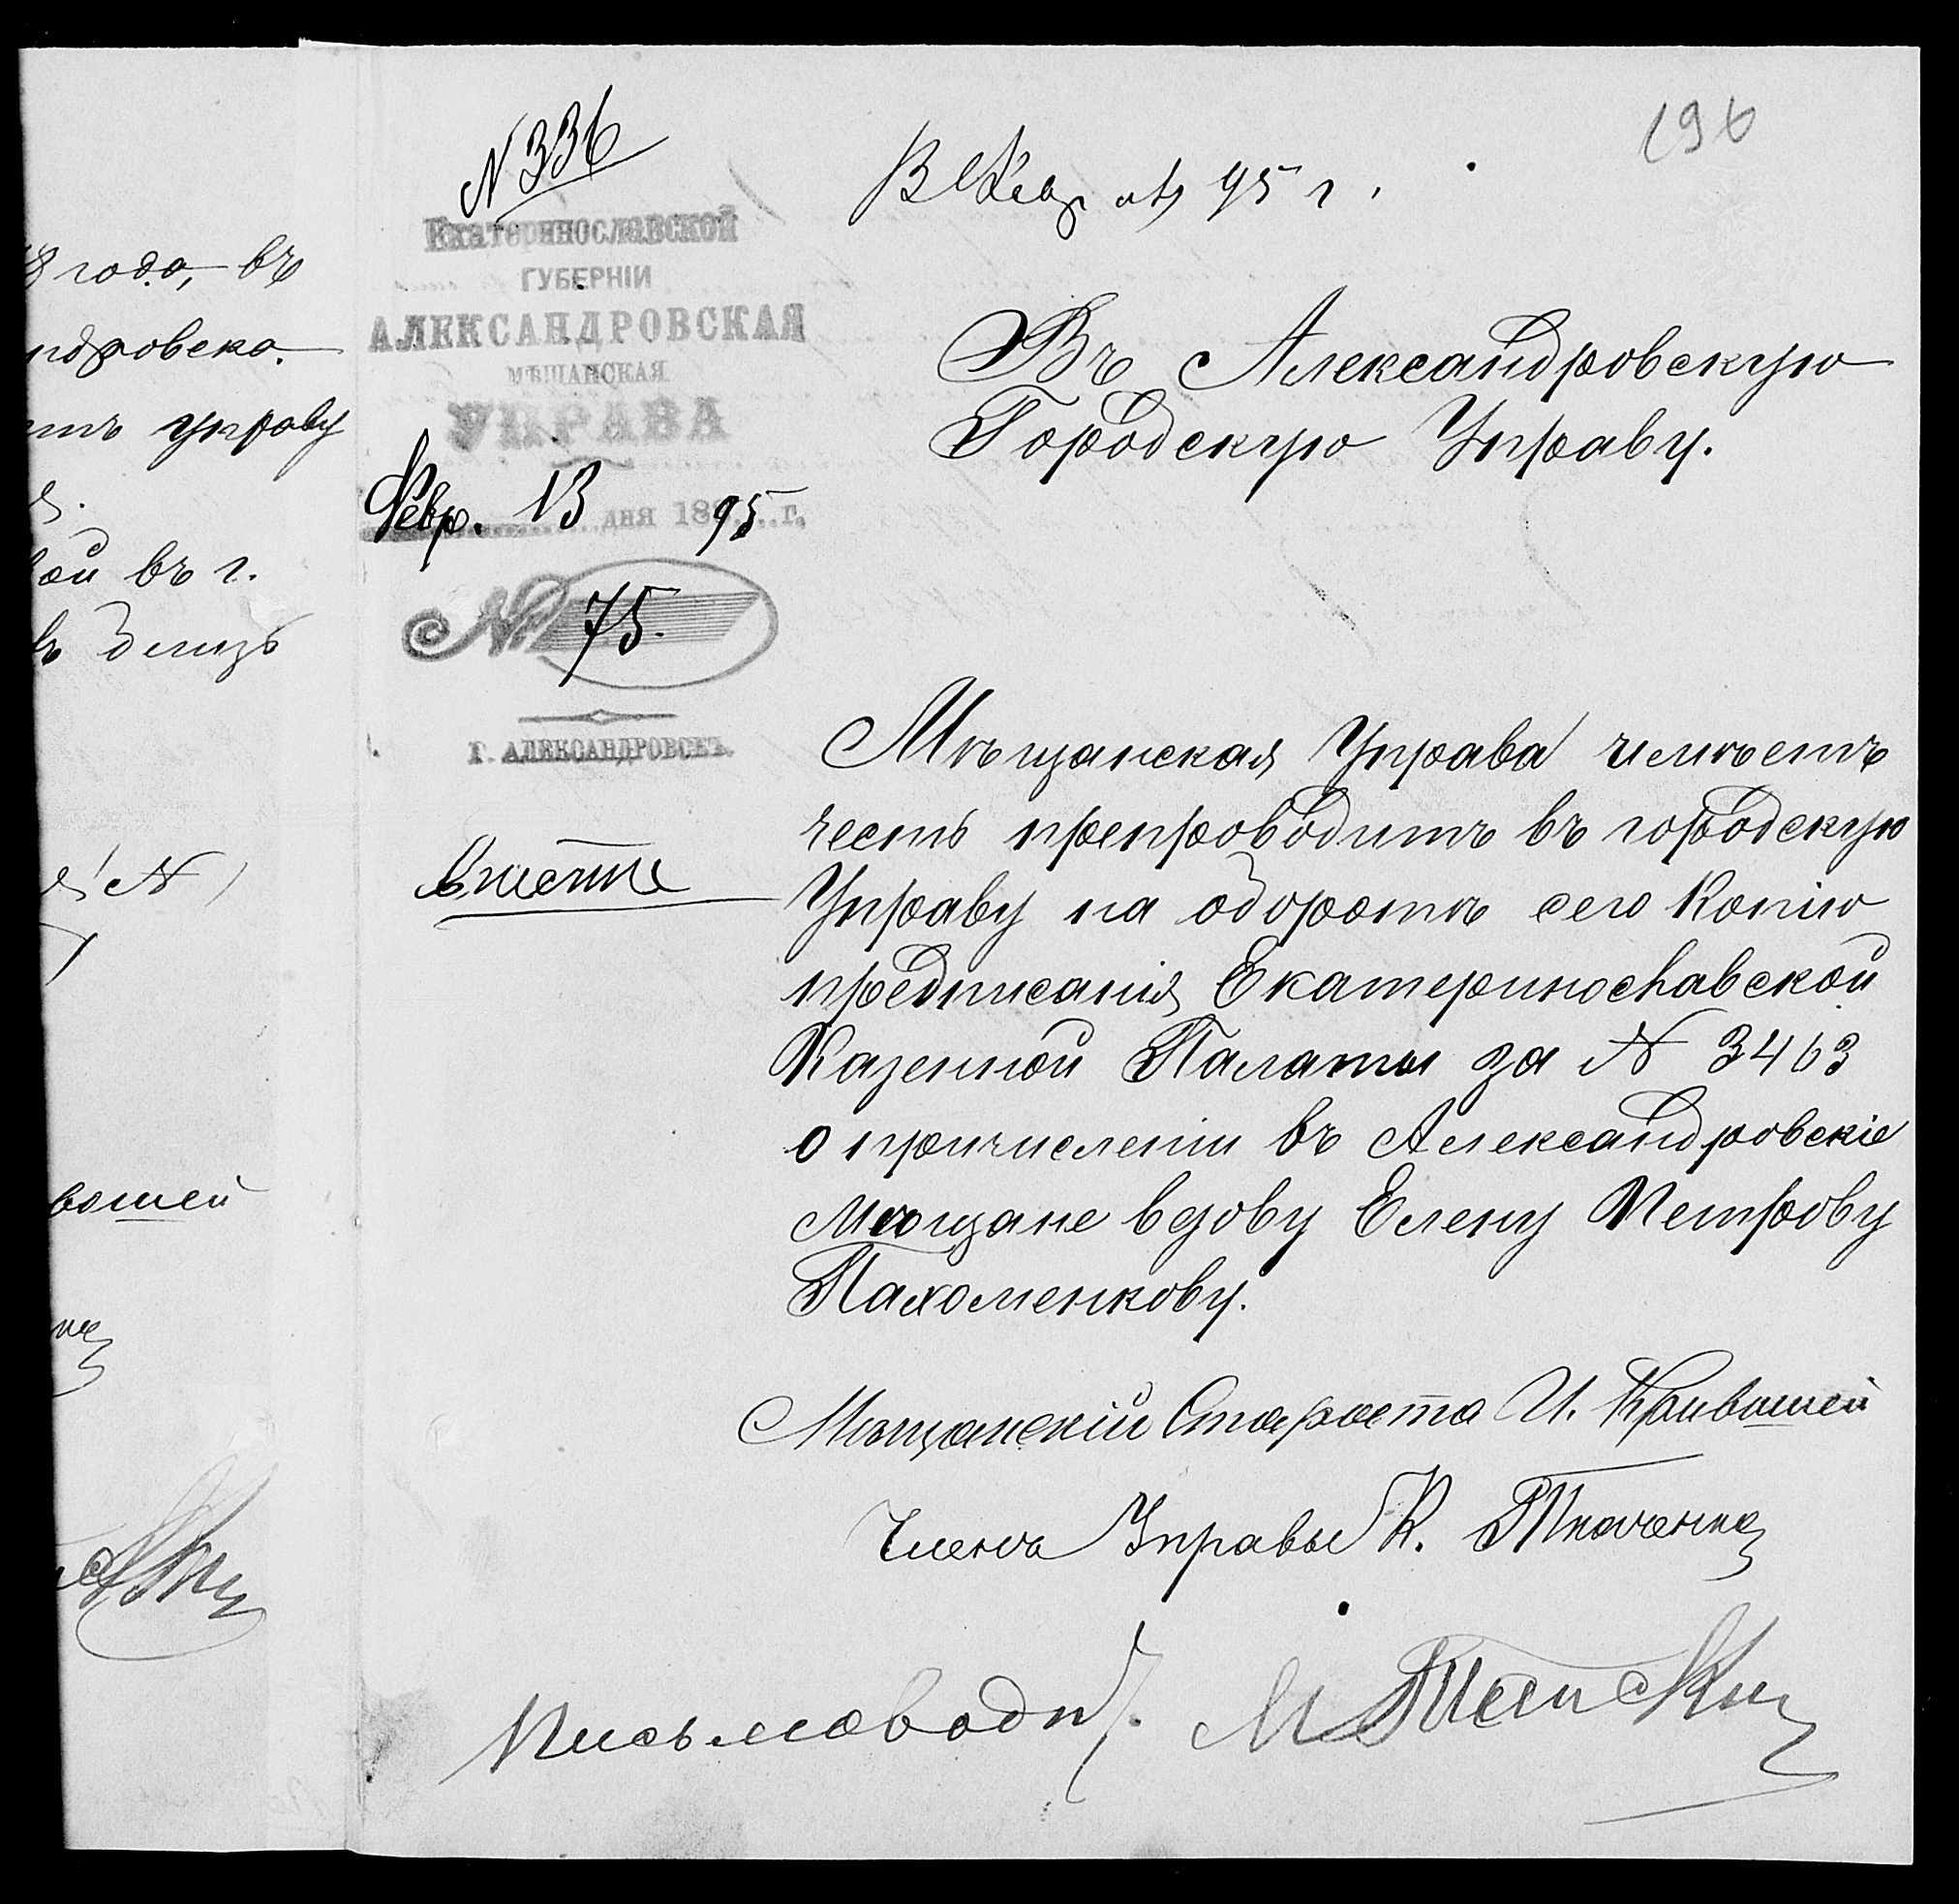 196
N 336
13 Февр 95 г.
Екатеринославской
ГУБЕРНІИ
АЛЕКСАНДРОВСКАЯ
МѢЩАНСКАЯ
УПРАВА
Февр. 13 дня 1895 г.
№ 75.
Г. АЛЕКСАНДРОВСКЪ.
Въ Александровскую
Городскую Управу.
Мѣщанская Управа имѣетъ
честь препроводить въ городскую
Управу на оборотѣ сего Копію
предписанія Екатеринославской
Казенной Палаты за № 3463
о причисленіи въ Александровскіе
мѣщане вдову Елену Петрову
Пахоменкову.
Мѣщанскій Староста И. Кривошей
Членъ Управы К. Ткаченко
Письмоводит.
8 года, въ
ндровска.
управу
ой въ г.
№
вошей